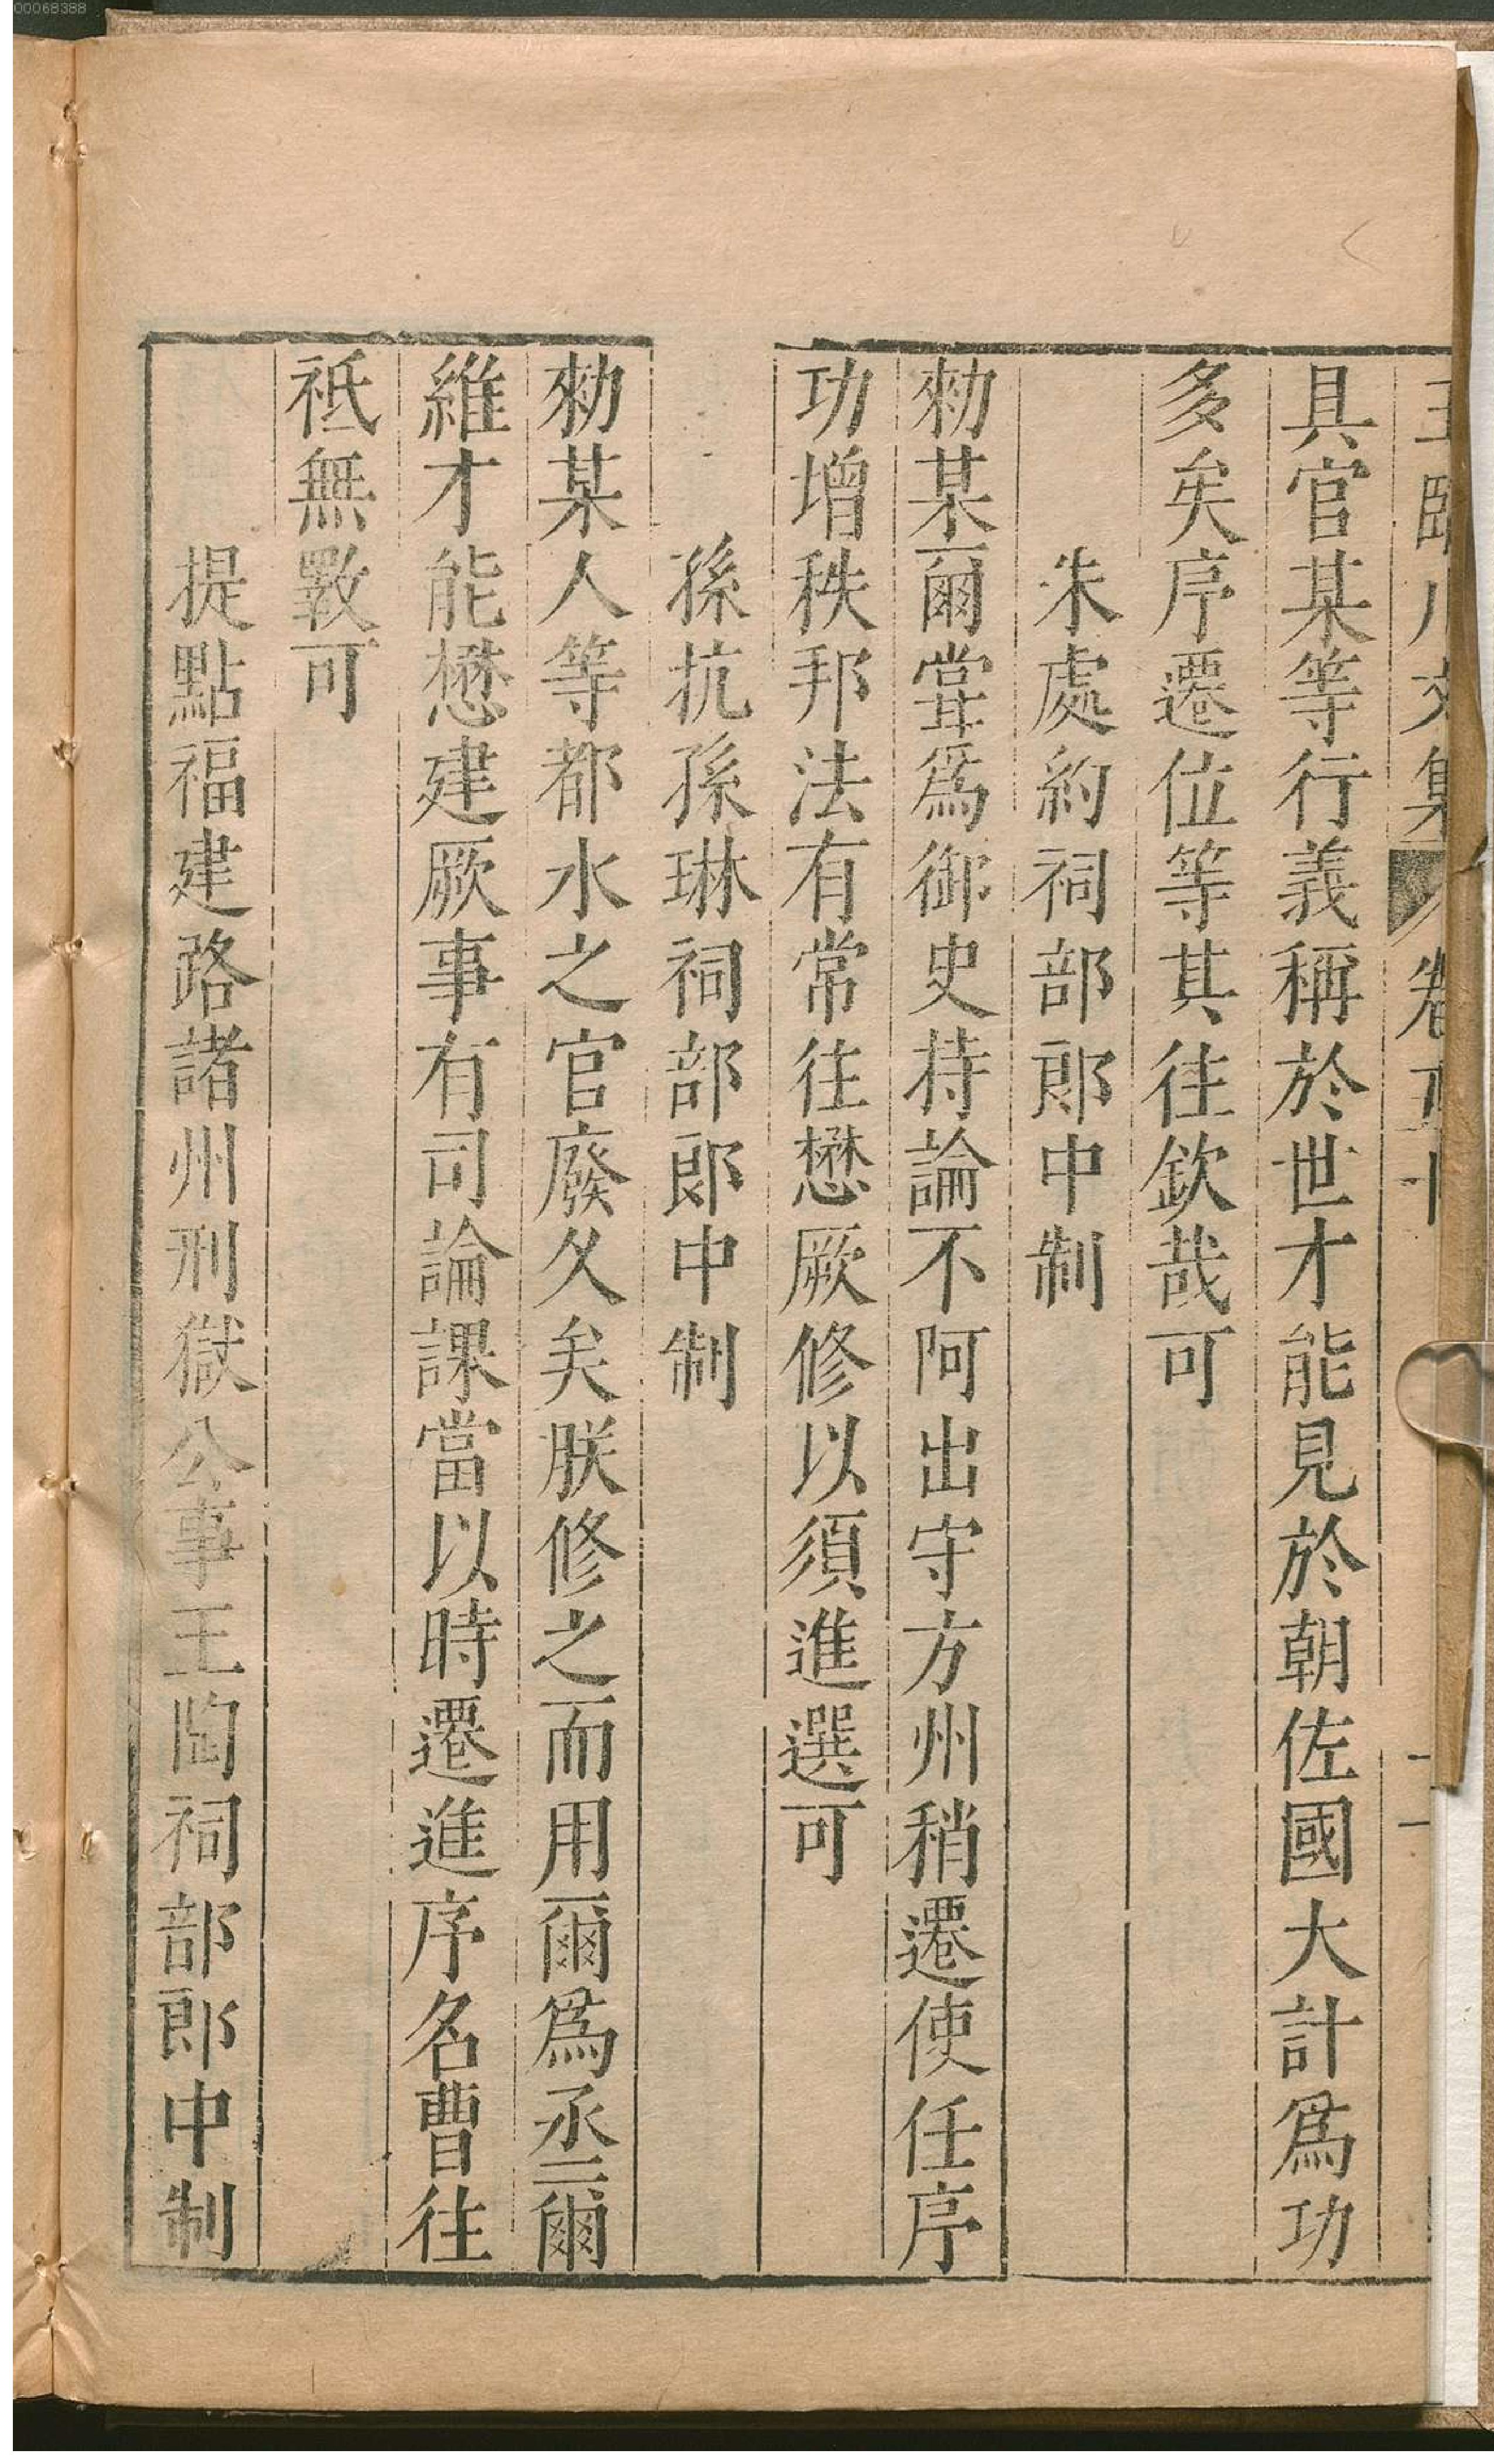 00068388
具官某等行義稱於世才能見於朝佐國大計爲功
多矣序遷位等其往欽哉可
朱處約祠部郎中制
勑某爾嘗爲御史持論不阿出守方州稍遷使任序
功增秩邦法有常往懋厥修以須進選可
孫抗孫琳祠部郎中制
勑某人等都水之官廢久矣朕修之而用爾爲丞爾
維才能懋建厥事有司論課當以時遷進序名曹往
祗無斁可
提點福建路諸州刑獄公事王陶祠部郎中制